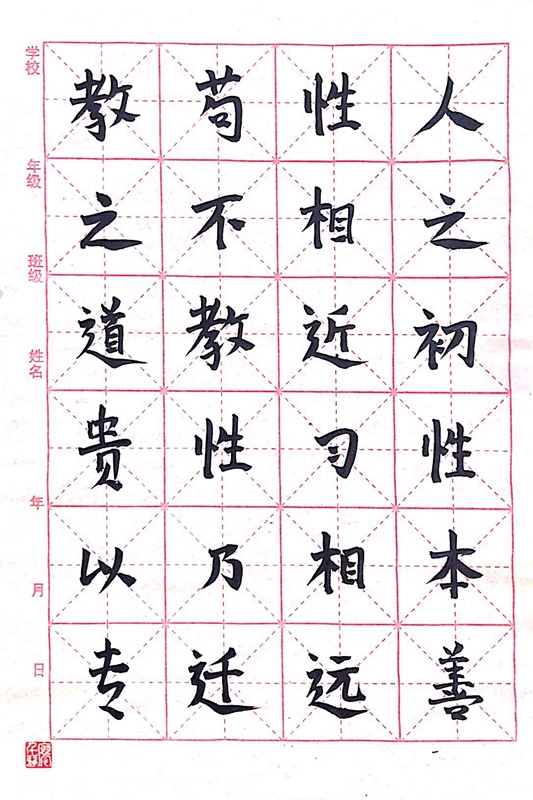 人之初性本善
性相近习相远
苟不教性乃迁
教之道贵以专
学校
年级
班级
姓名
年
月
日